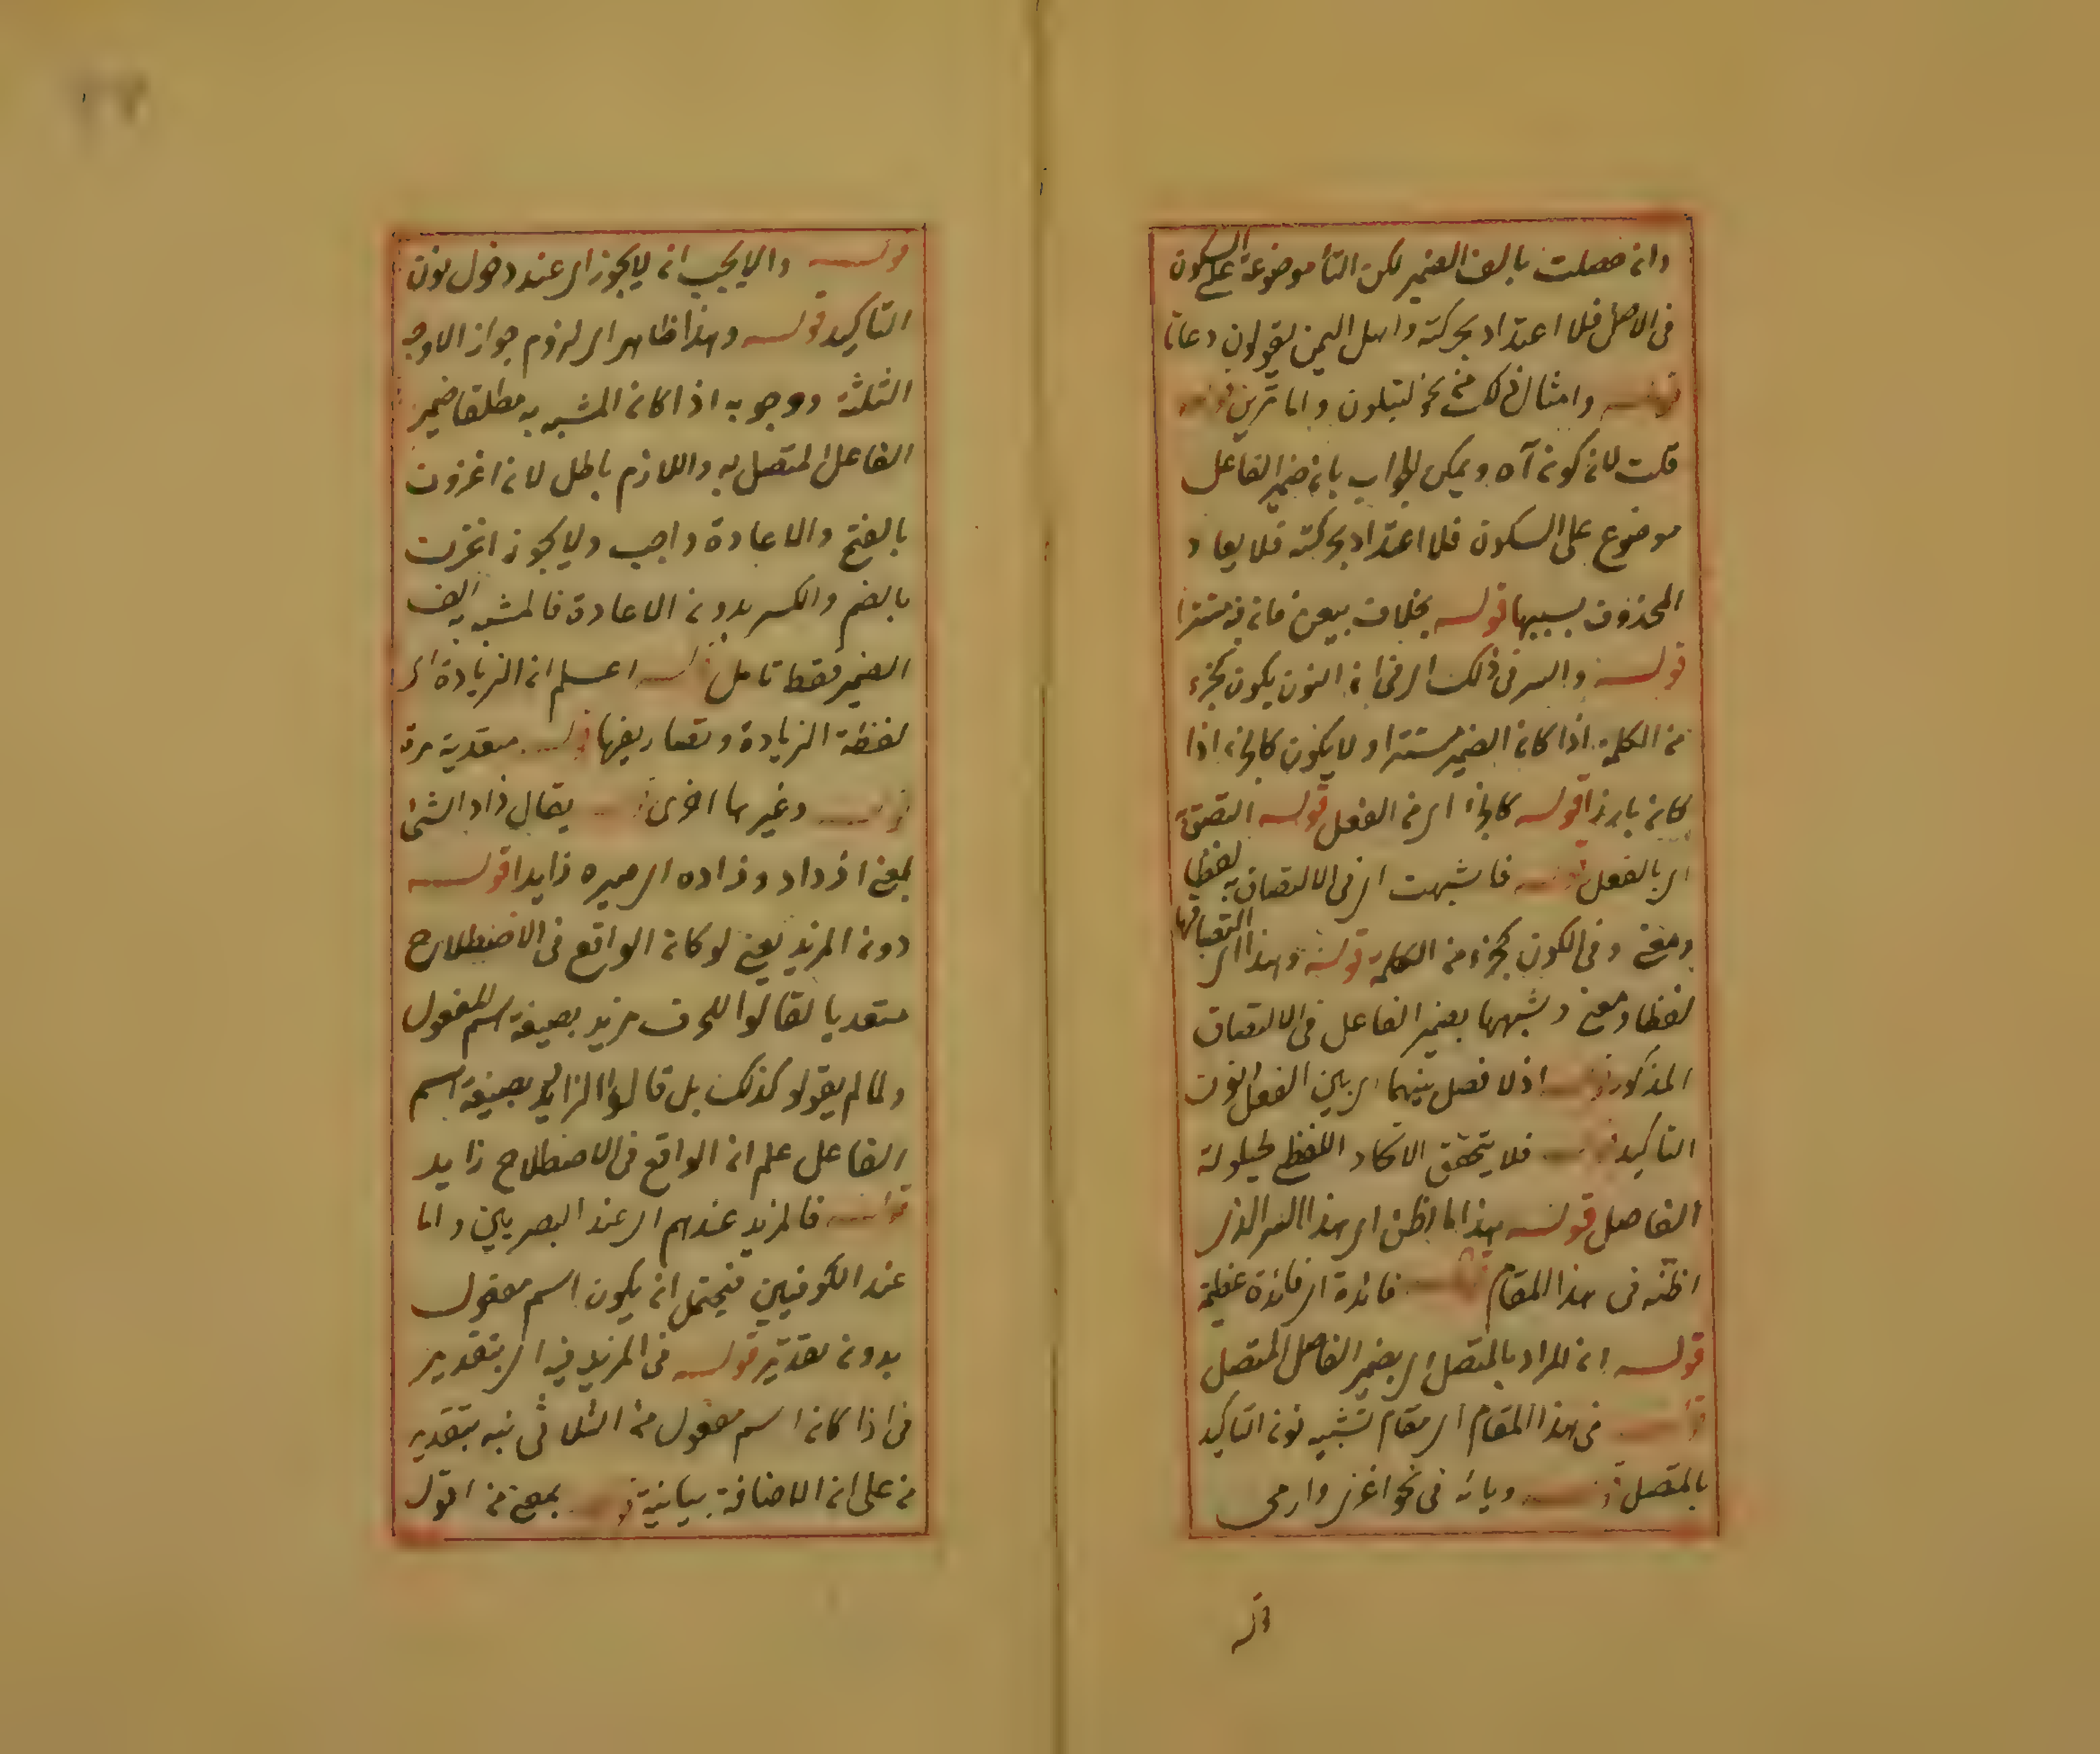 وان حصلت بالف الضمير لكن التأ موضوعة على السكون
فى الاصل فلا اعتداد بحركته واهل اليمن يقولون دعاتا
قوله وامثال ذلك من نحو لتبلون واما ترين قوله
قلت لان كونه آه ويمكن الجواب بان ضمير الفاعل
موضوع على السكون فلا اعتداد بحركته فلا يعاد
المحذوف بسببها قوله بخلاف بيعن فانه مستترا
قوله والسر فى ذلك اى فى ان النون يكون كجزء
من الكلمة اذا كان الضمير مستترا ولا يكون كالجزء اذا
كان بارزا قوله كالجزء اى من الفعل قوله التصق
اى بالفعل قوله فاشبهت اى فى الالتصاق به لفظا
ومعنى وفى الكون كجزء من الكلمة قوله وهذا اى التصاقها
لفظا ومعنى وشبهها بضمير الفاعل فى الالتصاق
المذكور قوله اذ لا فصل بينهما اى بين الفعل والنون
التاكيد قوله فلا يتحقق الاتحاد اللفظى لحيلولة
الفاصل قوله هذا ما اظن اى هذا السر الذى
اظنه فى هذا المقام قوله فائدة اى فائدة عظيمة
قوله ان المراد بالمتصل اى بضمير الفاعل المتصل
قوله فى هذا المقام اى مقام تشبيه نون التاكيد
بالمتصل قوله ويائه فى نحو اغزى وارمى
قوله
قوله والا يجب ان لا يجوز اى عند دخول نون
التاكيد قوله وهذا ظاهر اى لزوم جواز الاوجه
الثلثة ووجوبه اذا كان المشبه به مطلقا ضمير
الفاعل المتصل به واللازم باطل لان اغزون
بالفتح والاعادة واجب ولا يجوز اغزن
بالضم والكسر بدون الاعادة فالمشبه به الف
الضمير فقط تامل قوله اعلم ان الزيادة اى
لفظة الزيادة وتصاريفها قوله متعدية مرة
قوله وغيرها اخرى قوله يقال زاد الشئ
بمعنى ازداد وزاده اى صيره زايدا قوله
دون المزيد يعنى لو كان الواقع فى الاصطلاح
متعديا لقالوا للحرف مزيد بصيغة اسم المفعول
ولما لم يقولو كذلك بل قالوا الزايد بصيغة اسم
الفاعل علم ان الواقع فى الاصطلاح زايد
قوله فالمزيد عندهم اى عند البصريين واما
عند الكوفيين فيحتمل ان يكون اسم مفعول
بدون تقدير قوله فى المزيد فيه اى بتقدير
فى اذا كان اسم مفعول من الثلاثى نبه بتقدير
من على ان الاضافة بيانية قوله بمعنى من اقول